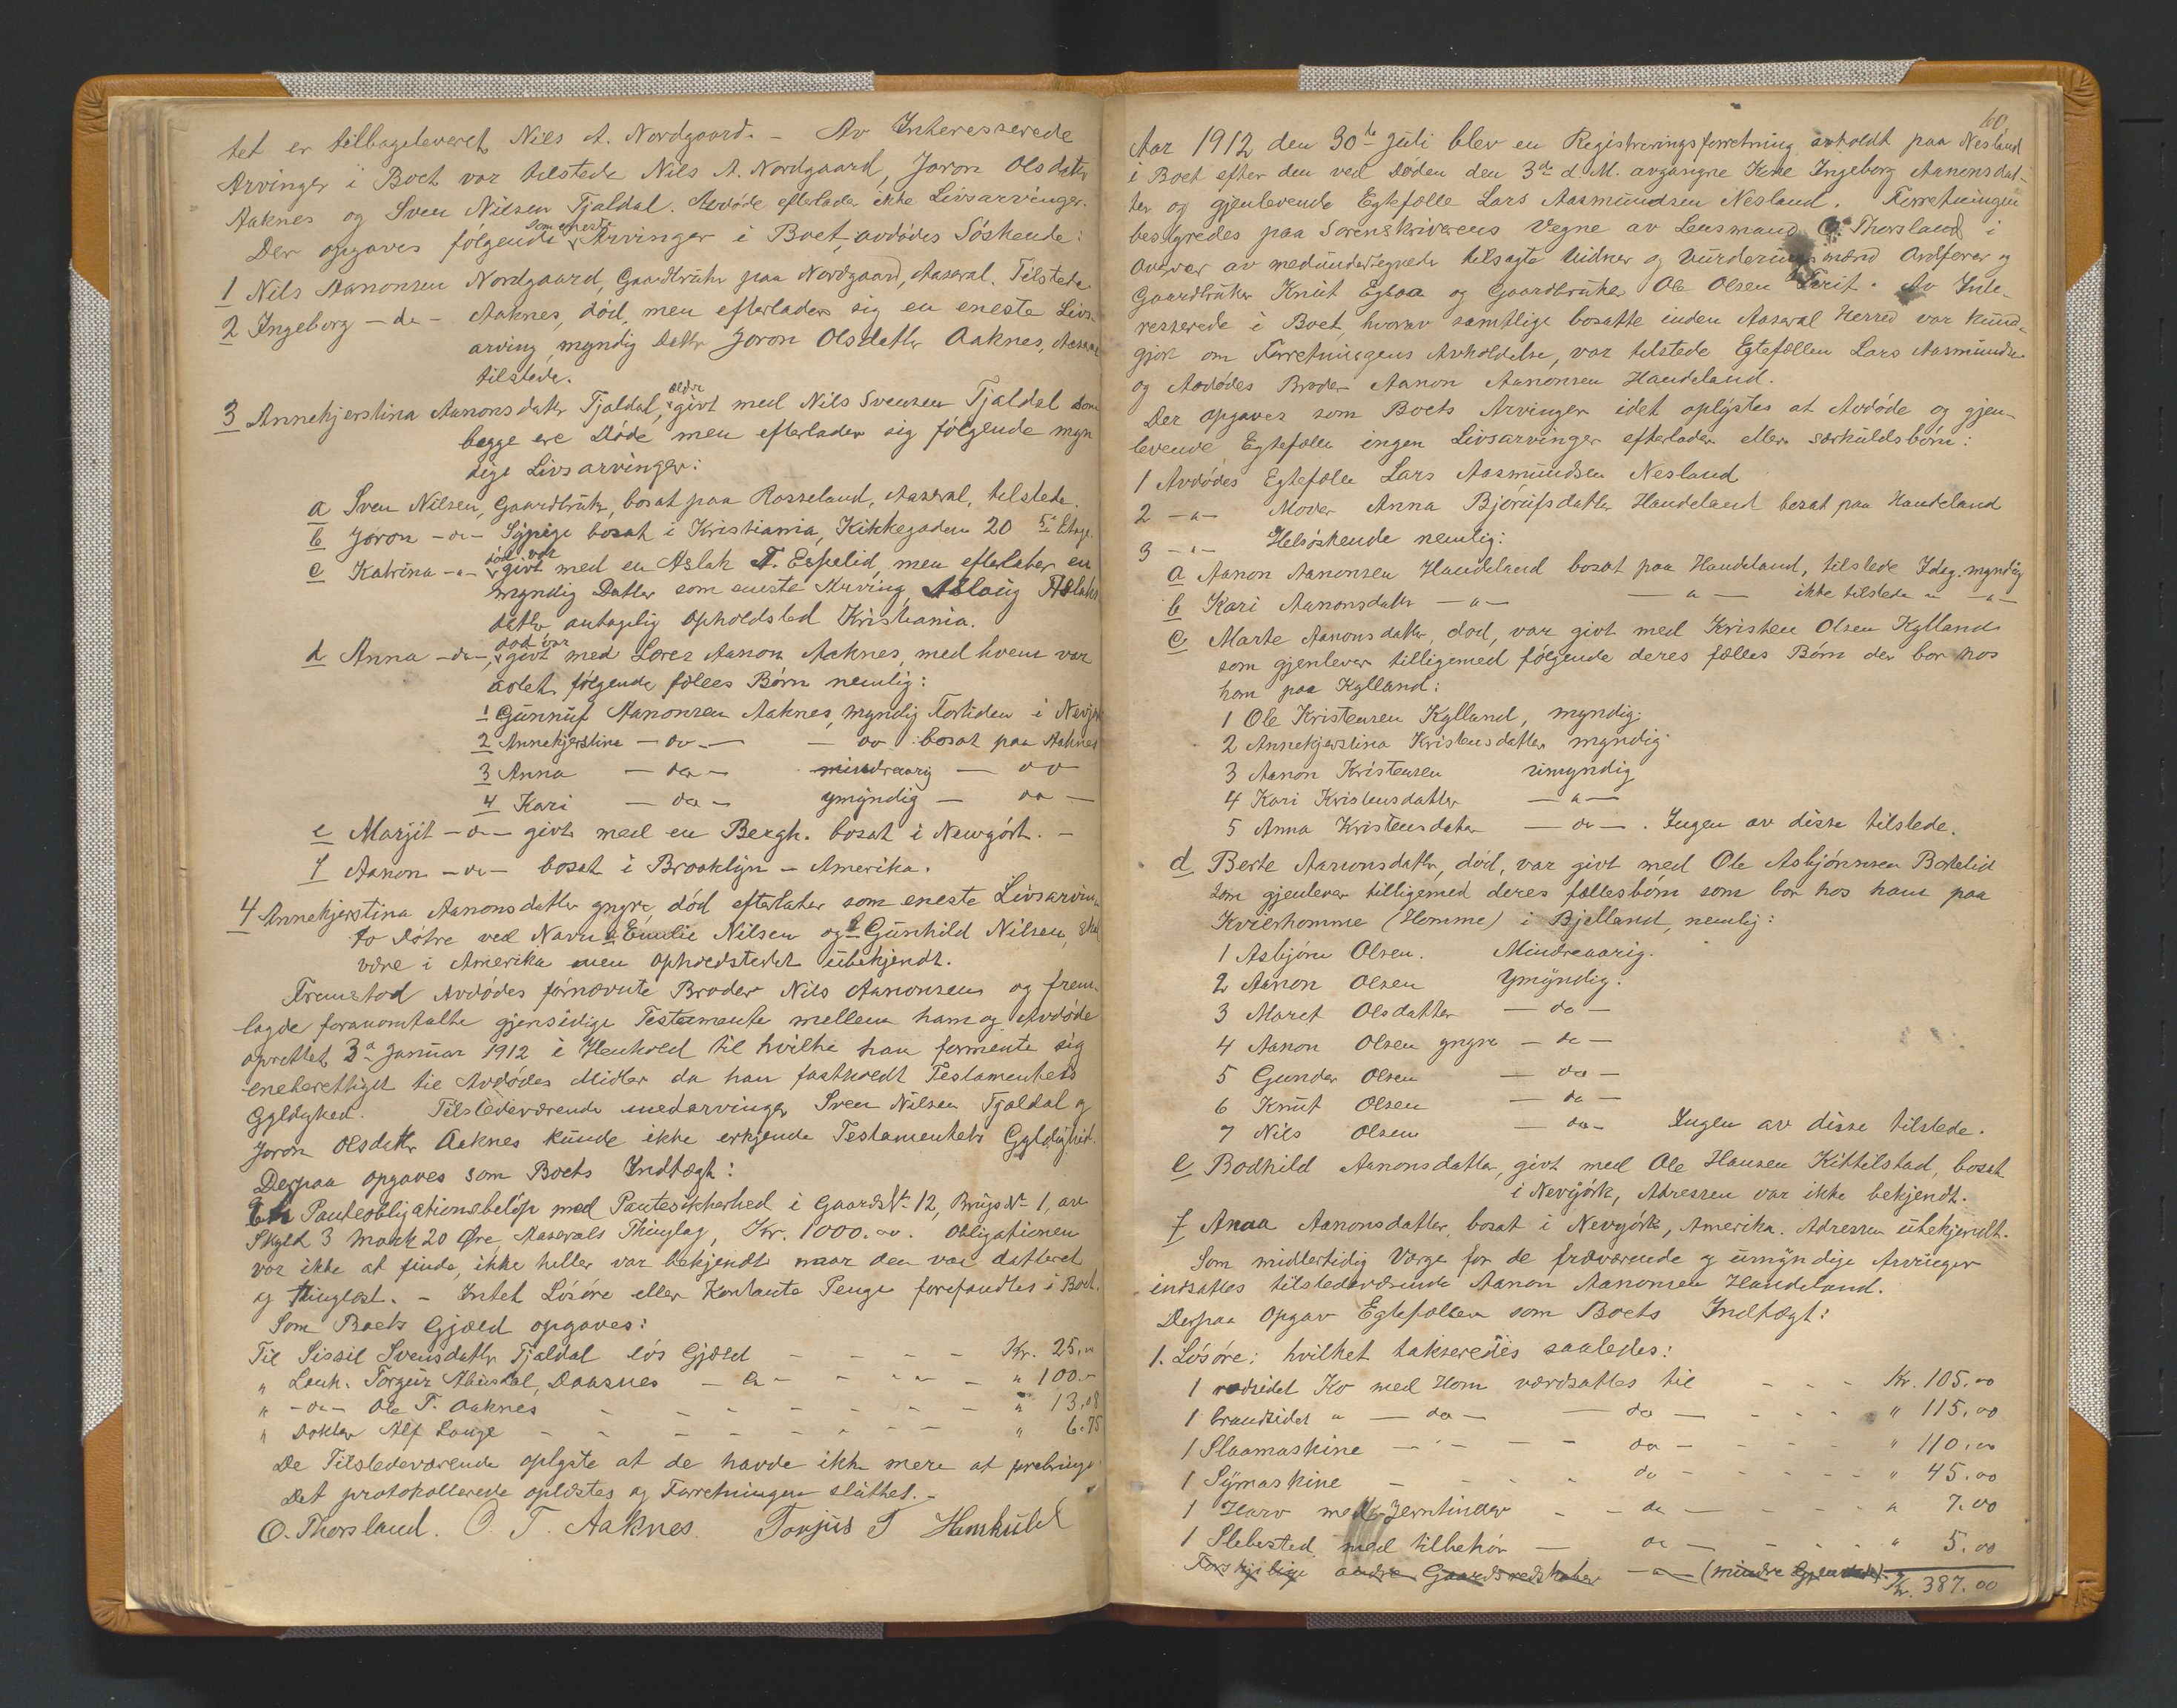 tet er tilbageleveret Nils A. Nordgaard. - Av Interesserede
Arvinger i Boet var tilstede Nils A. Nordgaard, Joron Olsdatter
Aaknes og Sven Nilsen Tjaldal. Avdøde efterlader ikke Livsarvinger.
Der opgaves følgende som eneste Arvinger i Boet, avdødes Søskende:
1 Nils Aanonsen Nordgaard, Gaardbruker paa Nordgaard, Aaseral. Tilstede
2 Ingeborg - do - Aaknes, død, men efterlader sig en eneste Livs-
arving, myndig Datter Joron Olsdatter Aaknes, Aaseral
tilstede.
3 Annekjerstina Aanonsdatter Tjaldal, ældre givt med Nils Svensen Tjaldal som
begge ere Døde men efterlader sig følgende myn
dige Livsarvinger:
a Sven Nilsen, Gaardbruker, bosat paa Rosseland, Aaseral, tilstede.
b Joron - do - Sypige bosat i Kristiania, Kikkegaden 20 5te Etage.
c Katrina - " - død var givt med en Aslak T. Espelid, men efterlater en
myndig Datter som eneste Arving, Aslaug Aslaks
datter antagelig Opholdsted Kristiania.
d Anna - do -, død var givt med Lorez Aanon Aaknes, med hvem var
avlet følgende fælles Børn nemlig:
1 Gunnuf Aanonsen Aaknes, myndig Fortiden i Nevjork
2 Annekjerstina - do - - do bosat paa Aaknes
3 Anna - do - mindreaarig - do
4 Kari - do - Ymyndig - do -
e Marjit - do - givt med en Bergh. bosat i Newyórk. -
f Aanon - do - bosat i Brooklyn - Amerika.
4 Annekjerstina Aanonsdatter yngre, død efterlater som eneste Livsarvin-
to Døtre ved Navn a Emilie Nilsen og b Gunhild Nilsen, skal
være i Amerika men Opholdstedet ubekjendt.
Fremstod Avdødes førnævnte Broder Nils Aanonsen og frem-
lagde foranomtalte gjensidige Testamente mellem ham og Avdøde
oprettet 3de Januar 1912 i Henhold til hvilke han formente sig
eneberettiget til Avdødes Midler da han fastholdt Testamentets
Gyldighed. Tilstedeværende medarvinger Sven Nilsen Tjaldal og
Joron Olsdatter Aaknes kunde ikke erkjende Testamentets Gyldighet.
Derpaa opgaves som Boets Indtægt:
Et Panteobligationsbeløp med Pantesikkerhed i Gaards No 12, Brugs No 1, av
Skyld 3 Mark 20 Øre, Aaserals Thinglag, Kr. 1000.00. Obligationen
var ikke at finde, ikke heller var bekjendt naar den var datteret
og thinglæst. - Intet Løsøre eller Kontante Penge forefandtes i Boet.
Som Boets Gjæld opgaves:
Til Sissil Svensdatter Tjaldal løs Gjæld - - - - Kr. 25,"
" Lauh. Torgeir Aabusdal, Daasnes - do - - - - " 100.-
" - do - Ole T. Aaknes - - - - - - " 13,08
" Dokter Alf Lange - - - - - - - " 6.75
De Tilstedeværende oplyste at de havde ikke mere at frebringe
Det protokollerede oplæstes og Forretningen sluttet. -
O. Thorsland. O. T. Aaknes. Tonjus T Homkuld
60.
Aar 1912 den 30te Juli blev en Registreringsforretning avholdt paa Nesland
i Boet efter den ved Døden den 3de d. M. avgangne Kone Ingeborg Aanonsdat-
ter og gjenlevende Egtefælle Lars Aasmundsen Nesland. Forretningen
bestyredes paa Sorenskriverens Vegne av Lensmand O. Thorsland i
Overvær av medundertegnede tilsagte Vidner og Vurderingsmænd Ordfører og
Gaardbruker Knut Egbaa og Gaardbruker Ole Olsen Verit. Av Inte-
resserede i Boet, hvorav samtlige bosatte inden Aaseral Herred var kund-
gjort om Forretningens Avholdelse, var tilstede Egtefællen Lars Aasmundsen
og Avdødes Broder Aanon Aanonsen Haudeland.
Der opgaves som Boets Arvinger idet oplystes at Avdøde og gjen-
levende Egtefælle ingen Livsarvinger efterlader eller særkuldsbørn:
1 Avdødes Egtefælle Lars Aasmundsen Nesland
2 - " - Moder Anna Bjorufsdatter Haudeland bosat paa Haudeland
3 - " - Helsøskende nemlig:
a Aanon Aanonsen Haudeland bosat paa Haudeland, tilstede Idag. myndig
b Kari Aanonsdatter - " - - " - ikke tilstede " - " -
c Marte Aanonsdatter, død, var givt med Kristen Olsen Kylland
som gjenlever tilligemed følgende deres fælles Børn der bor hos
ham paa Kylland:
1 Ole Kristensen Kylland, myndig.
2 Annekjerstina Kristensdatter myndig
3 Aanon Kristensen umyndig
4 Kari Kristensdatter - " -
5 Anna Kristensdatter - do - . Ingen av disse tilstede.
d Berte Aanonsdatter, død, var givt med Ole Asbjørnsen Bortelid
som gjenlever tilligemed deres fællesbørn som bor hos ham paa
Kvierhomme (Homme) i Bjelland, nemlig:
1 Asbjørn Olsen. Mindreaarig.
2 Aanon Olsen Ymyndig.
3 Maret Olsdatter - do -
4 Aanon Olsen yngre - do -
5 Gunder Olsen - do -
6 Knut Olsen - do -
7 Nils Olsen - do - Ingen av disse tilstede.
e Bodhild Aanonsdatter, givt med Ole Hansen Kittilstad, bosat
i Nevyórk, Adressen var ikke bekjendt.
f Anaa Aanonsdatter, bosat i Nevyórk, Amerika. Adressen ubekjendt.
Som midlertidig Værge for de fraværende og umyndige Arvinger
indsattes tilstedeværende Aanon Aanonsen Haudeland.
Derpaa Opgav Egtefællen som Boets Indtægt:
1. Løsøre: hvilket takseredes saaledes:
1 rødsidet Ko med Horn værdsattes til - - - Kr. 105.00
1 brandsidet " - do - - do - - - - " 115,00
1 Slaamaskine - - - - do - - - - " 110.00
1 Symaskine - - - - do - - - - " 45.00
1 Harv med Jerntinder - - do - - - - " 7.00
1 Slebested med tilbehør - do - - - - " 5.00
Forskjellige andre Gaardsredskaber - " - (mindre Gjenstande). Kr. 387.00